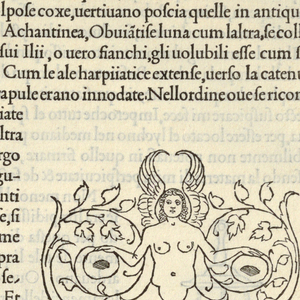 lpose coxe, uertiuano poscia quelle in antiqu
Achantinea, Obuiãtise luna cum laltra, se coll
sui Ilii, o uero fianchi, gli uolubili esse cum f
Cum le ale harpiiatice extense, uerso la caten
rapule erano innodate. Nellordine oue se ricon
iate
ltra
rgo
gu-
nti
e, si
me
pra
se.
Et